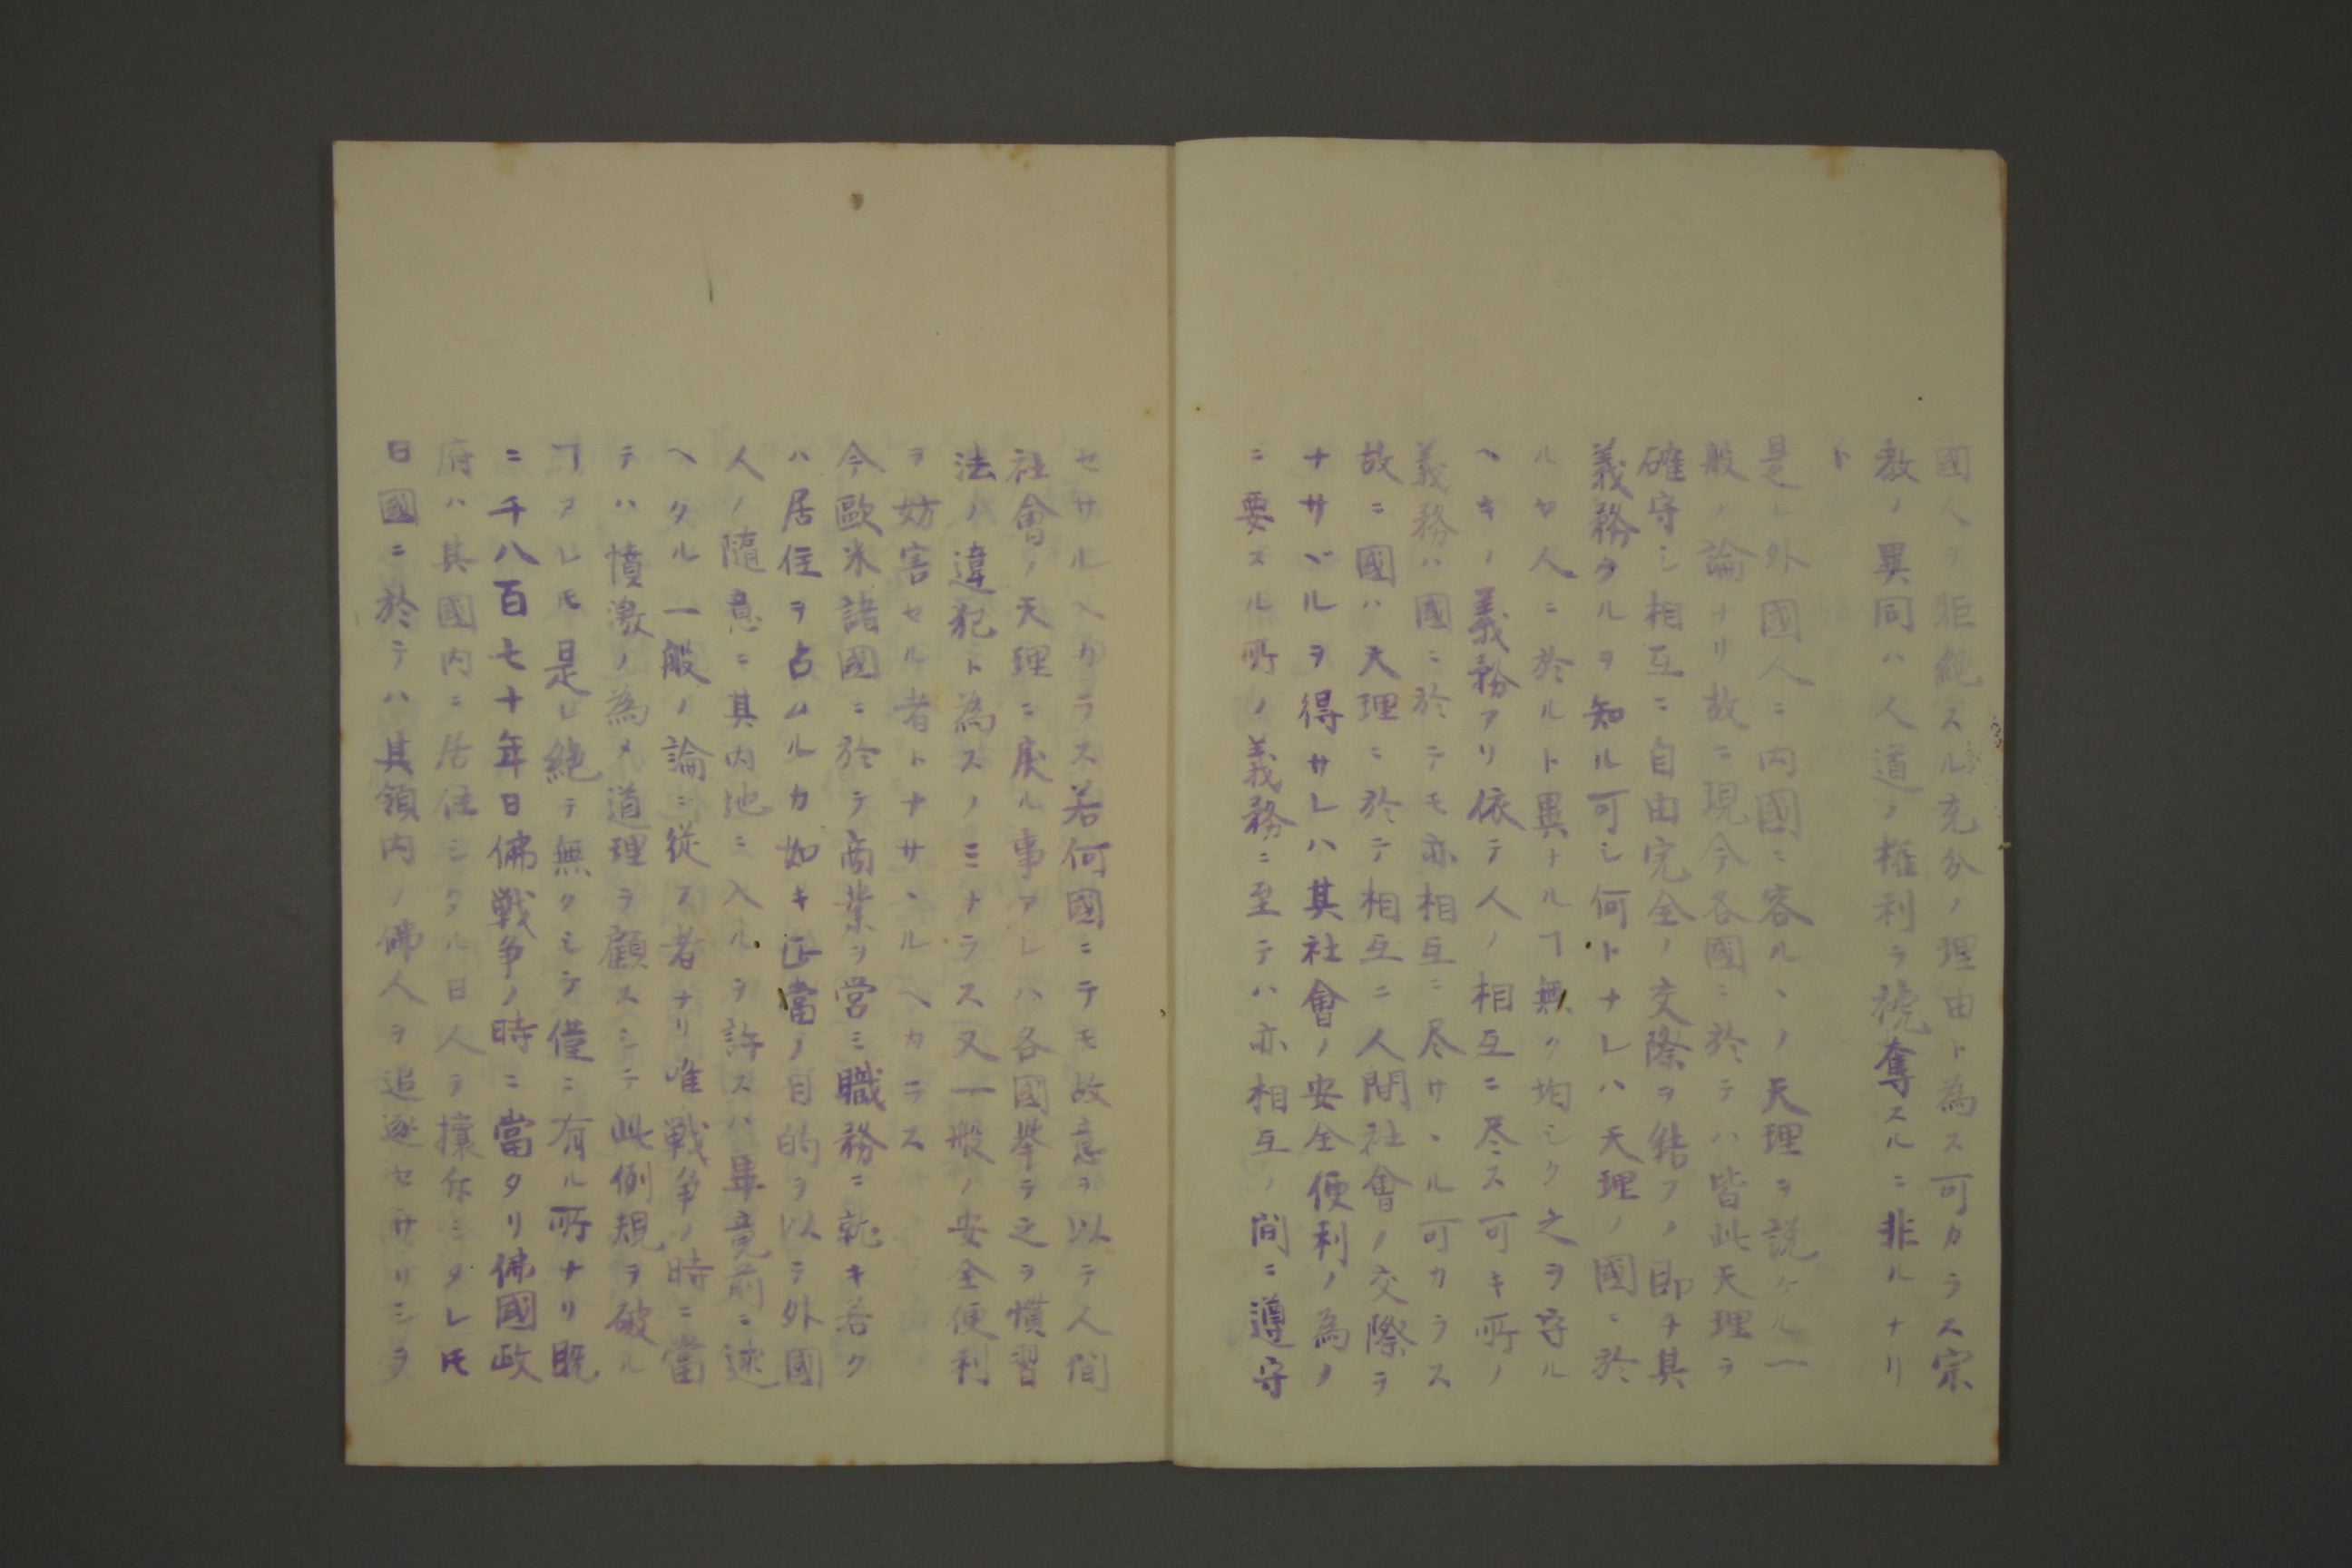 國人ヲ拒絶スル充分ノ理由ト為ス可カラス宗
教ノ異同ハ人道ノ權利ヲ褫奪スルニ非ルナリ
ト
是レ外國人ニ内國ニ容ルヽノ天理ヲ説ケル一
般ノ論ナリ故ニ現今各國ニ於テハ皆此天理ヲ
確守シ相互ニ自由完全ノ交際ヲ結フノ即チ其
義務タルヲ知ル可シ何トナレハ天理ノ國ニ於
ルヤ人ニ於ルト異ナルヿ無ク均シク之ヲ守ル
ヘキノ義務アリ依テ人ノ相互ニ尽ス可キ所ノ
義務ハ國ニ於テモ亦相互ニ尽サヽル可カラス
故ニ國ハ天理ニ於テ相互ニ人間社會ノ交際ヲ
ナサヾルヲ得サレハ其社會ノ安全便利ノ為メ
ニ要スル所ノ義務ニ至テハ亦相互ノ間ニ遵守
セサルヘカラス若何國ニテモ故意ヲ以テ人間
社會ノ天理ニ戻ル事アレハ各國挙テ之ヲ慣習
法ノ違犯ト為スノミナラス又一般ノ安全便利
ヲ妨害セル者トナサヽルヘカラス
今歐米諸國ニ於テ商業ヲ営ミ職務ニ就キ若ク
ハ居住ヲ占ムルカ如キ正當ノ目的ヲ以テ外國
人ノ隨意ニ其内地ニ入ルヲ許スハ畢竟前ニ述
ヘタル一般ノ論ニ従フ者ナリ唯戦争ノ時ニ當
テハ憤激ノ為メ道理ヲ顧スシテ此例規ヲ破ル
ヿアレ𪜈是レ絶テ無クシテ僅ニ有ル所ナリ既
ニ千八百七十年日佛戦争ノ時ニ當タリ佛國政
府ハ其國内ニ居住シタル日人ヲ攘斥シタレ𪜈
日國ニ於テハ其領内ノ佛人ヲ追逐セサリシヲ